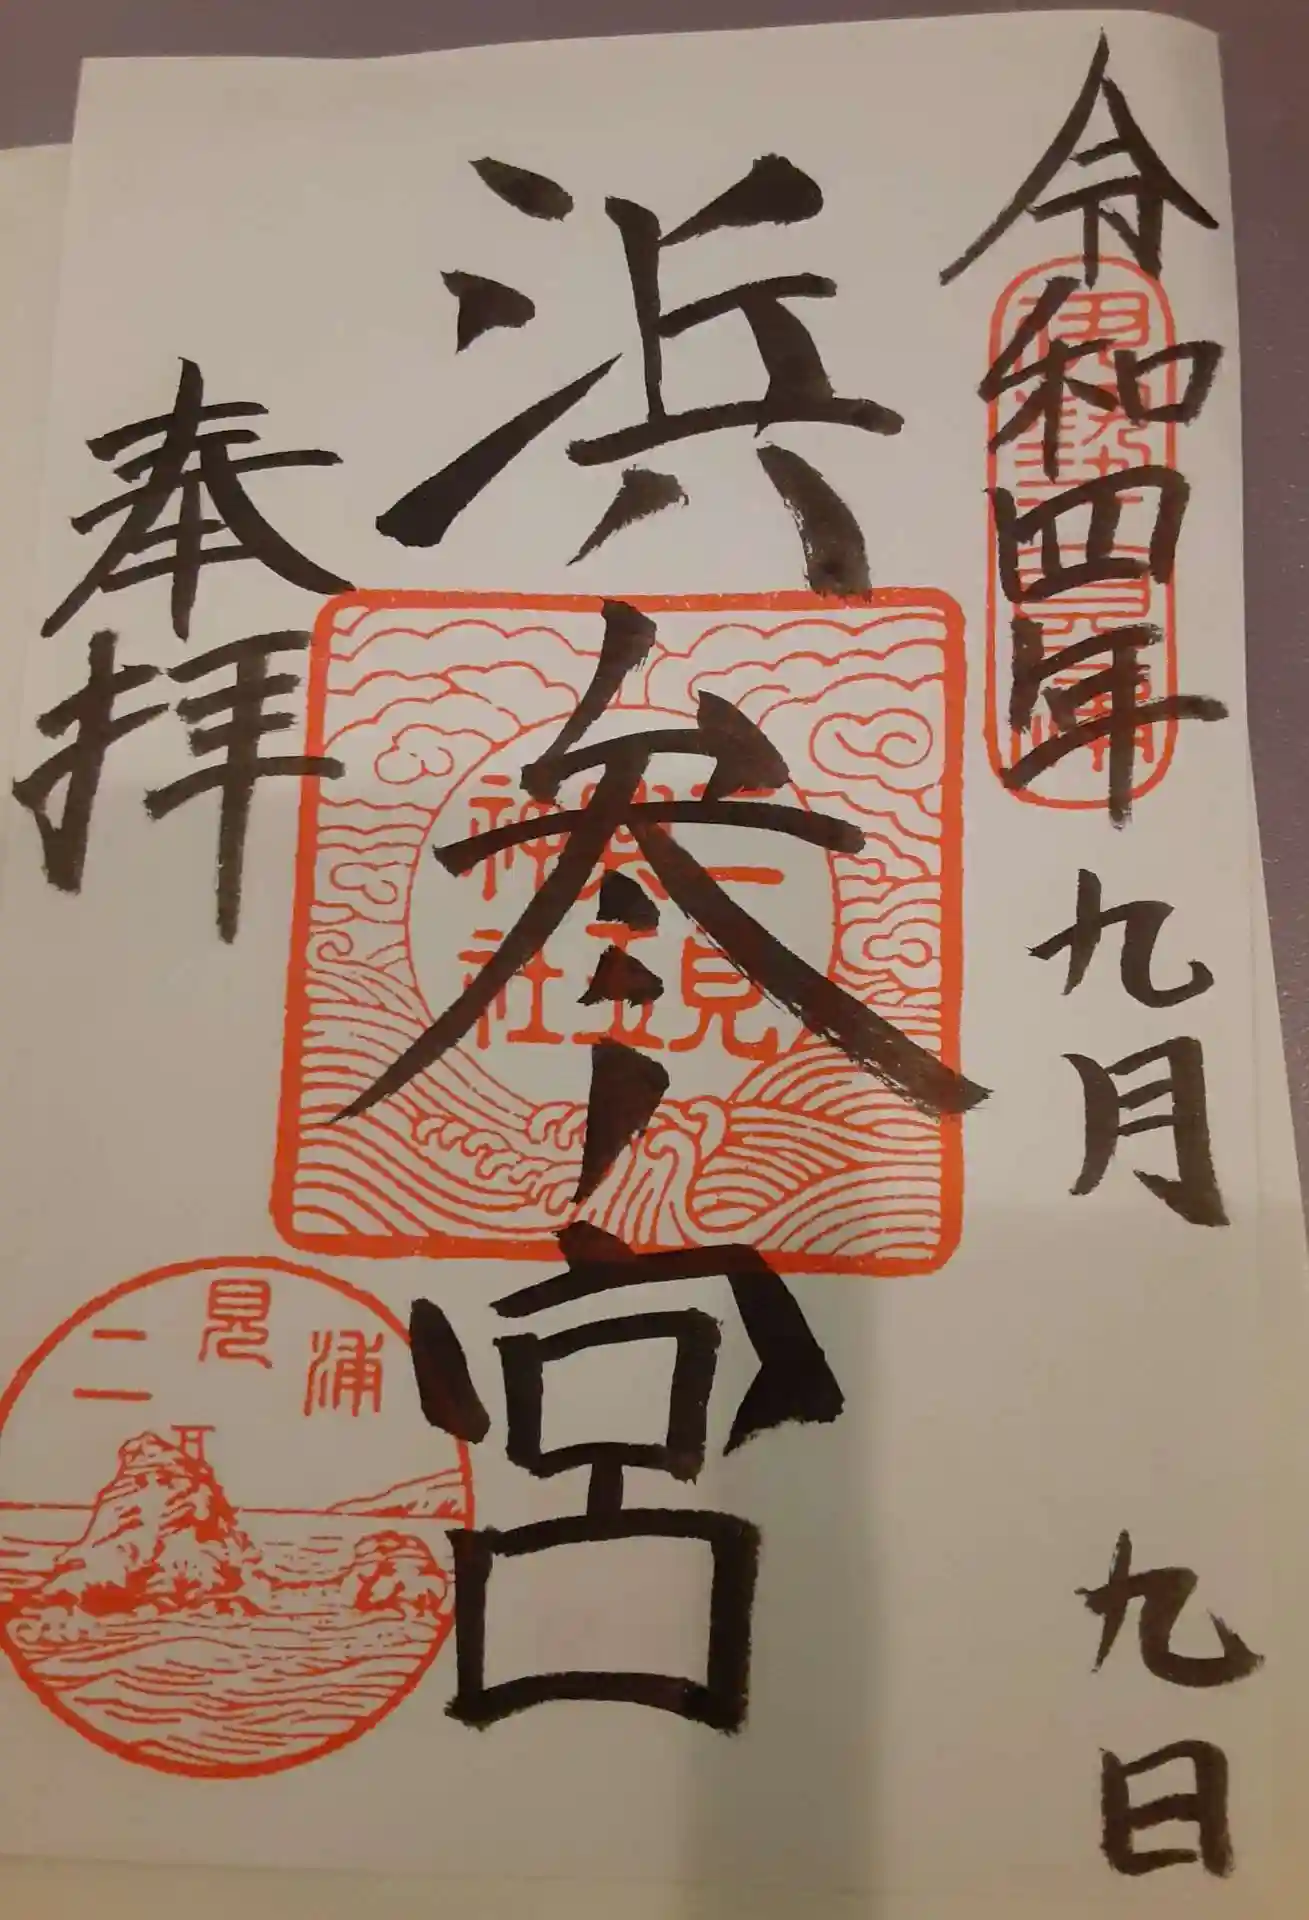 令和四年九月九日
伊勢二見浦
浜参宮
二見
興玉
神社
奉拝
二見浦